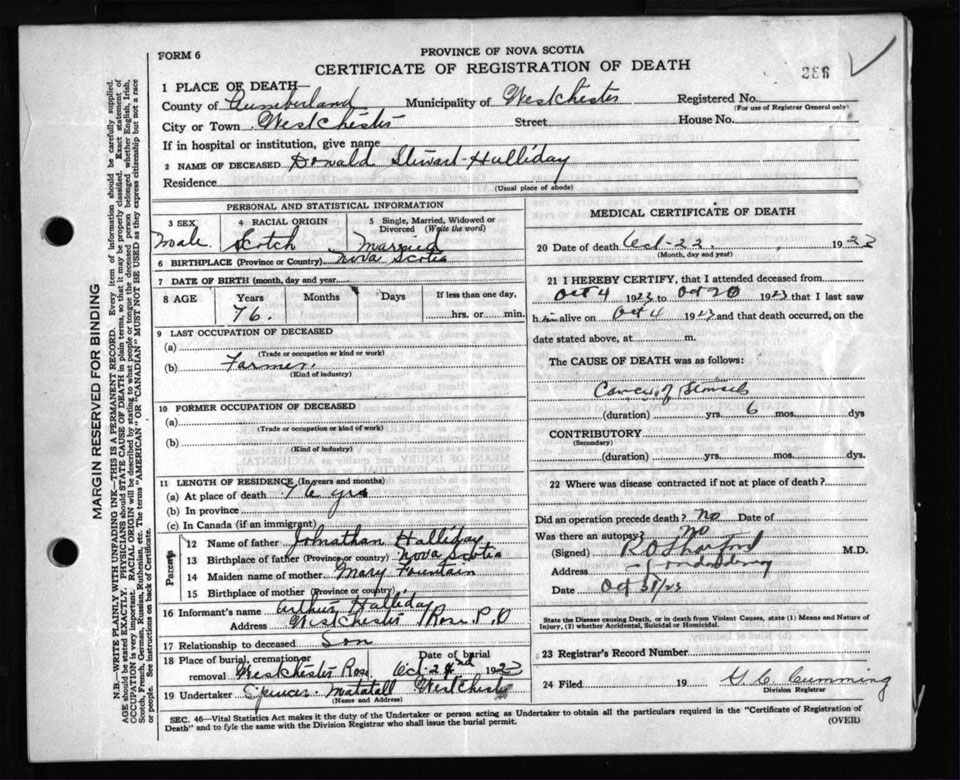 FORM 6
PROVINCE OF NOVA SCOTIA
CERTIFICATE OF REGISTRATION OF DEATH
286
MARGIN RESERVED FOR BINDING
N.B.—WRITE PLAINLY WITH UNFADING INK—THIS IS A PERMANENT RECORD. Every item of information should be carefully supplied.
AGE should be stated EXACTLY. PHYSICIANS should STATE CAUSE OF DEATH in plain terms, so that it may be properly classified. Exact statement of
OCCUPATION is very important. RACIAL ORIGIN will be described by stating to what people or tongue the deceased person belonged whether English, Irish,
Scotch, French, German, Russian, Ruthenian, etc. The terms "AMERICAN" or "CANADIAN" MUST NOT BE USED as they express citizenship but not a race
or people. See instructions on back of Certificate.
1 PLACE OF DEATH—
County of Cumberland Municipality of Westchester Registered No.
(For use of Registrar General only)
City or Town Westchester Street House No.
If in hospital or institution, give name
2 NAME OF DECEASED Donald Stewart Halliday
Residence
(Usual place of abode)
PERSONAL AND STATISTICAL INFORMATION
3 SEX 4 RACIAL ORIGIN 5 Single, Married, Widowed or Divorced (Write the word)
Male Scotch Married
6 BIRTHPLACE (Province or Country) Nova Scotia
7 DATE OF BIRTH (month, day and year)
8 AGE Years Months Days If less than one day,
76. hrs. or min.
9 LAST OCCUPATION OF DECEASED
(a)
(Trade or occupation or kind or work)
(b) Farmer.
(Kind of industry)
10 FORMER OCCUPATION OF DECEASED
(a)
(Trade or occupation or kind of work)
(b)
(Kind of industry)
11 LENGTH OF RESIDENCE (In years and months)
(a) At place of death 76 yrs
(b) In province
(c) In Canada (if an immigrant)
Parents
12 Name of father Johnathan Halliday
13 Birthplace of father (Province or country) Nova Scotia
14 Maiden name of mother Mary Fountain
15 Birthplace of mother (Province or country)
16 Informant's name Arthur Halliday
Address Westchester Rose P.O
17 Relationship to deceased Son
18 Place of burial, cremation or removal Westchester Rose Date of burial Oct-24nd 1923
19 Undertaker Spencer Matatall Westchester
(Name and Address)
MEDICAL CERTIFICATE OF DEATH
20 Date of death Oct-22. , 1923
(Month, day and year)
21 I HEREBY CERTIFY, that I attended deceased from
Oct 4 1923 to Oct 20 1923 that I last saw
him alive on Oct 4 1923 and that death occurred, on the
date stated above, at m.
The CAUSE OF DEATH was as follows:
Cancer of
(duration) yrs. 6 mos. dys
CONTRIBUTORY
(Secondary)
(duration) yrs. mos. dys.
22 Where was disease contracted if not at place of death?
Did an operation precede death? No Date of
Was there an autopsy? No
(Signed) M.D.
Address Londonderry
Date Oct 31/23
State the Disease causing Death, or in death from Violent Causes, state (1) Means and Nature of
Injury, (2) whether Accidental, Suicidal or Homicidal.
23 Registrar's Record Number
24 Filed 19 G. C. Cumming
Division Registrar
SEC. 46—Vital Statistics Act makes it the duty of the Undertaker or person acting as Undertaker to obtain all the particulars required in the "Certificate of Registration of
Death" and to fyle the same with the Division Registrar who shall issue the burial permit.
(OVER)